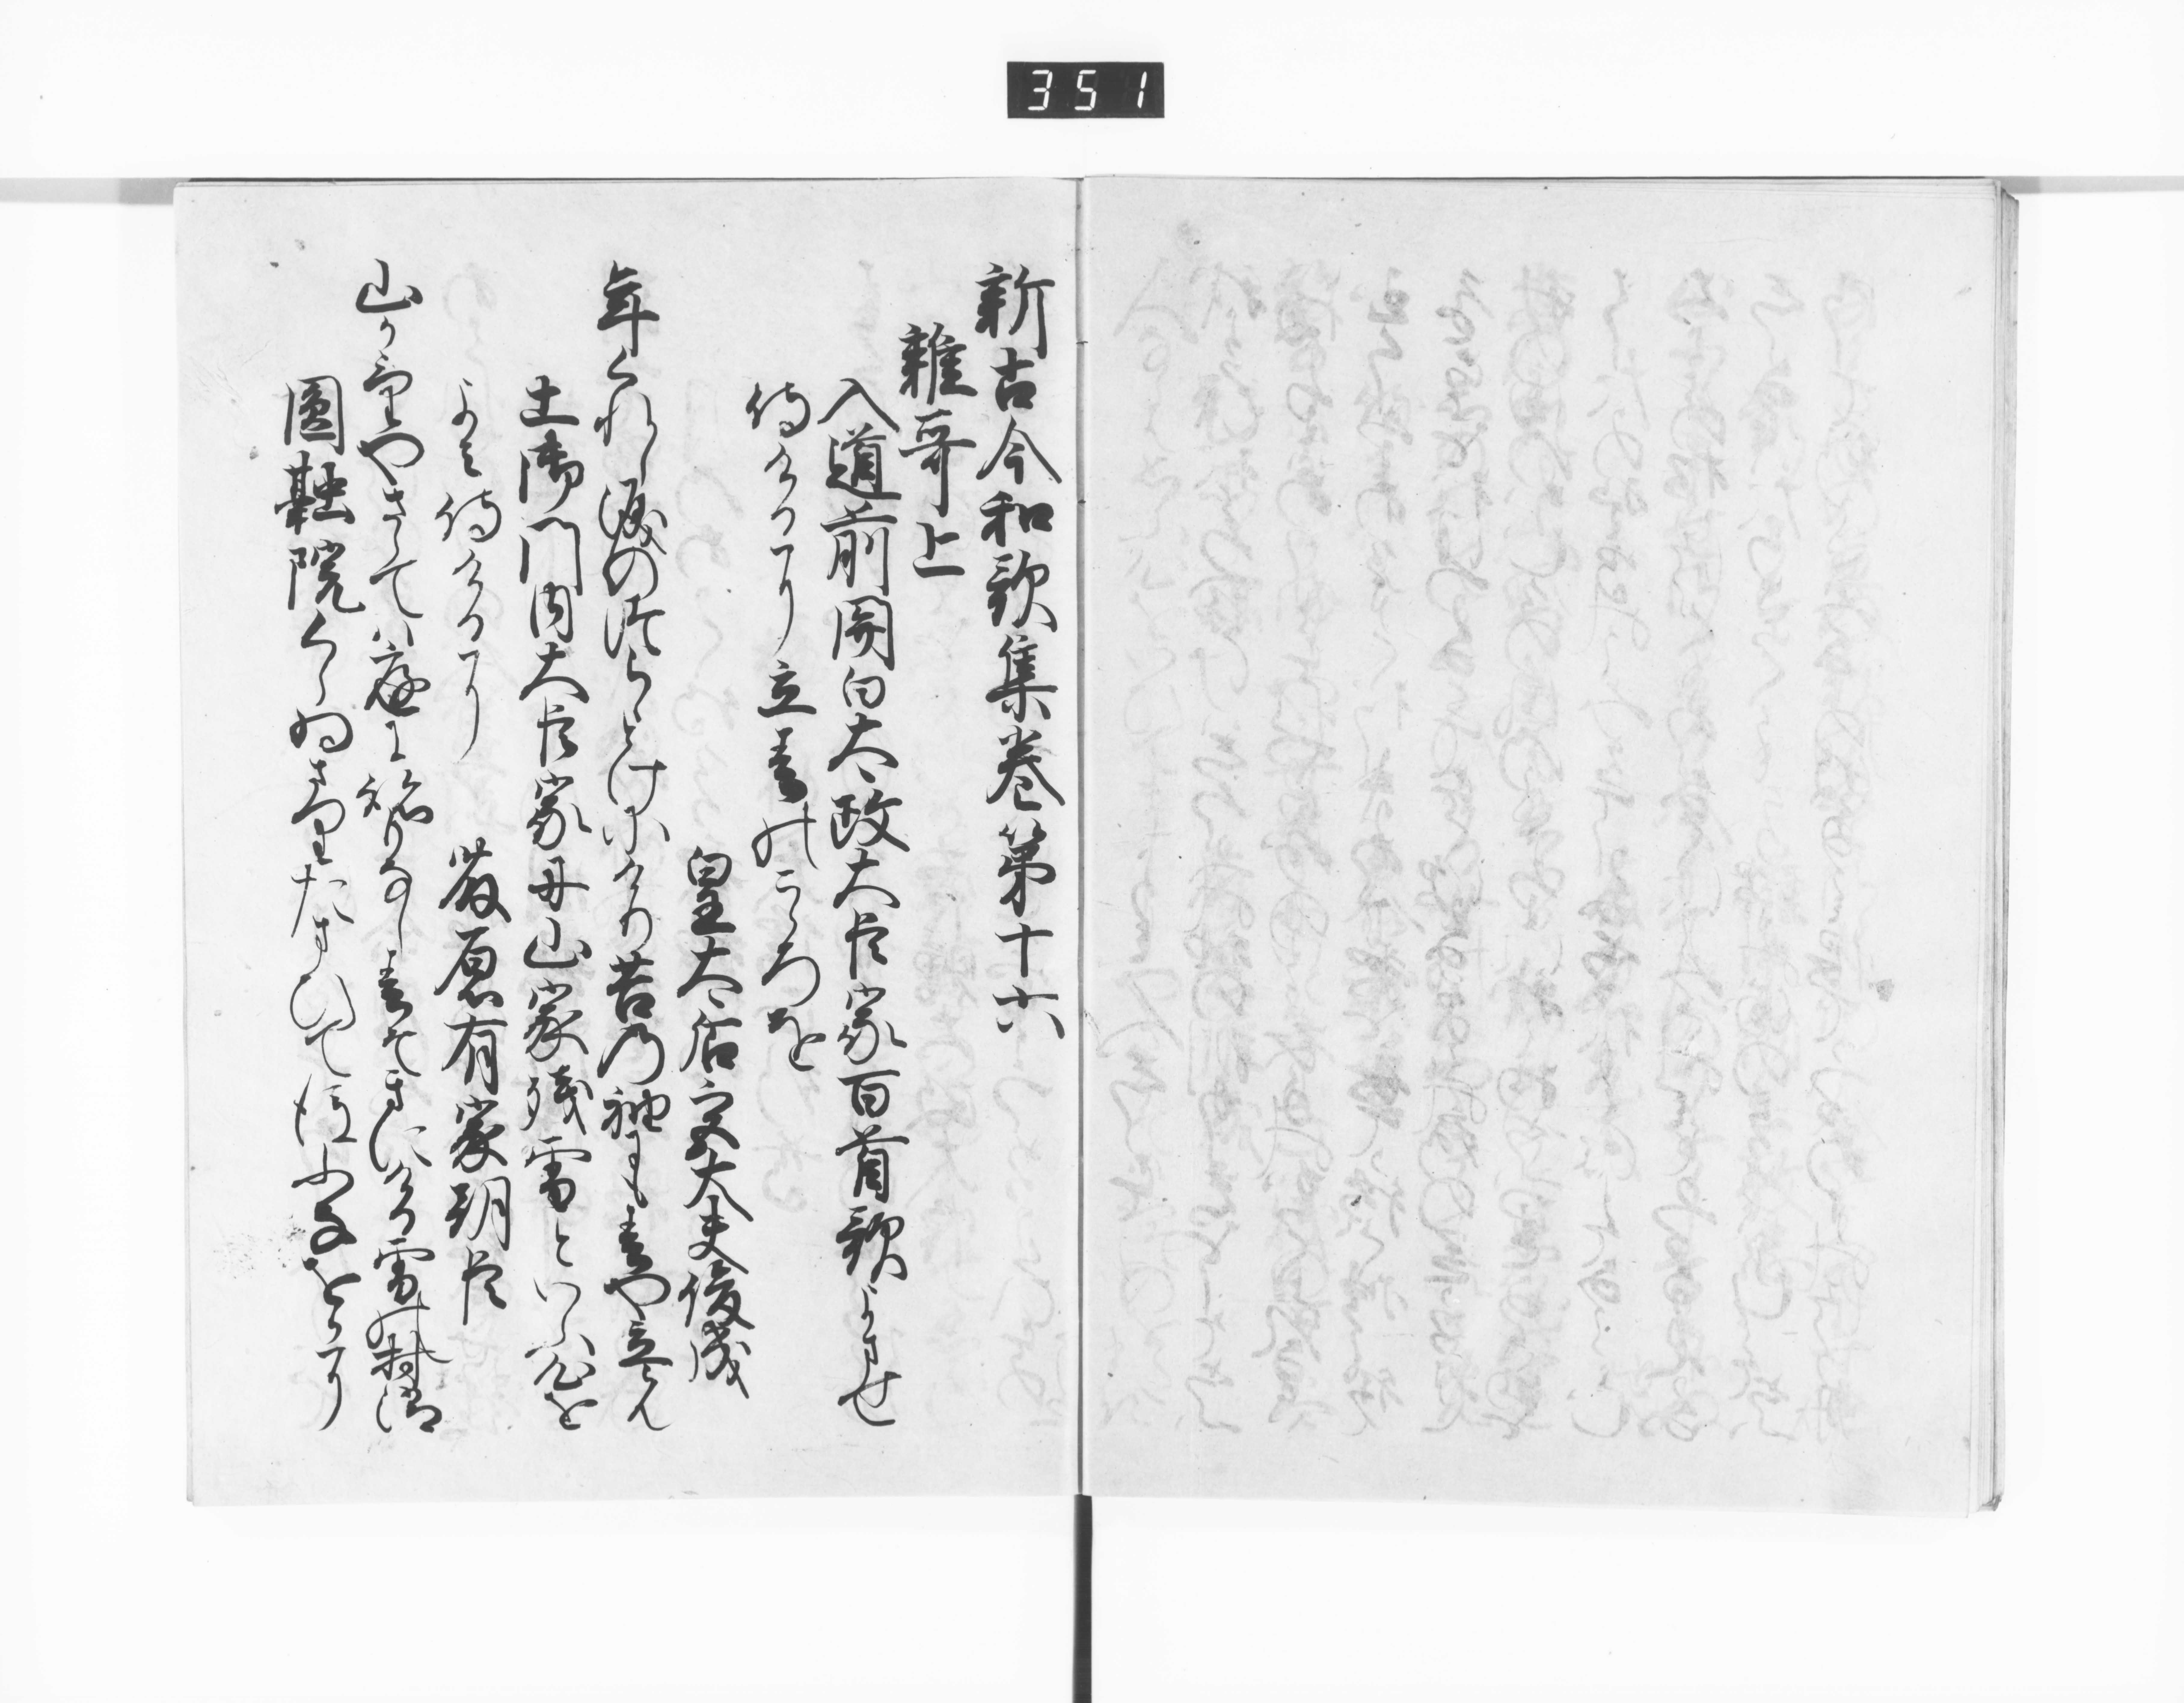 351
新古今和歌集巻第十六
雜哥上
入道前関白太政大臣家百首歌よませ
侍けるに立春のこゝろを
皇太后宮大夫俊成
年くれし涙のつらゝとけにけり苔の袖にも春や立らん
土御門内大臣家にて山家残雪といふ心を
よみ侍けるに
藤原有家朝臣
山かけやさらては庭に跡もなし春そきにける雪の村消
圓融院くらゐさりたまひて後ふなをかに